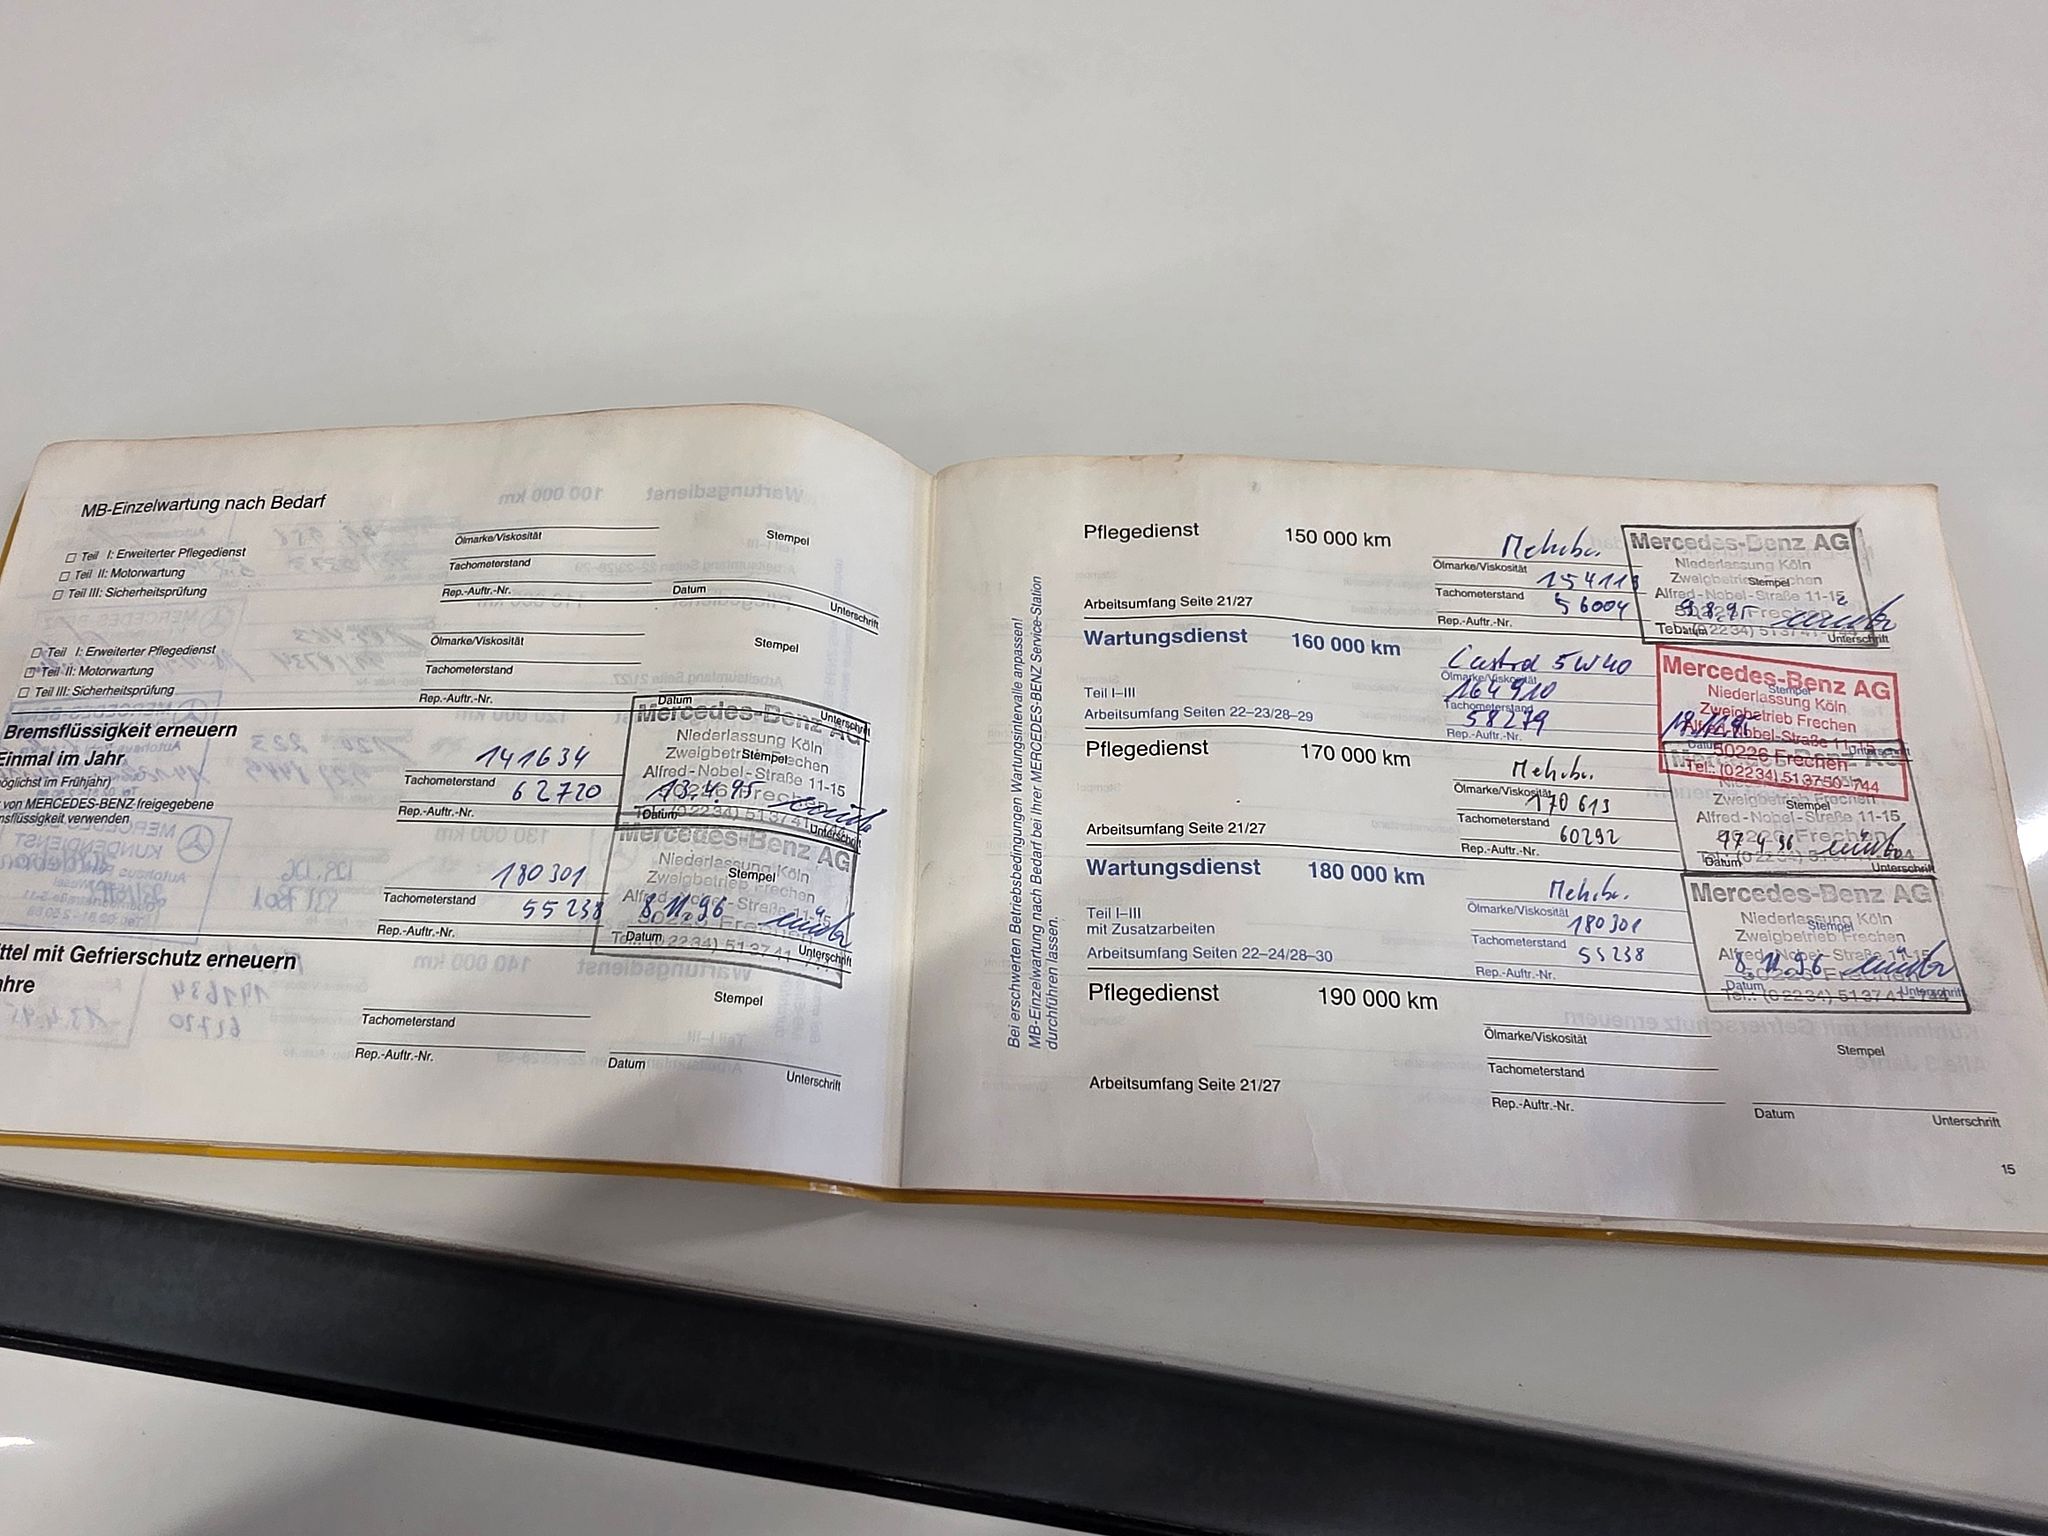 MB-Einzelwartung nach Bedarf
Teil I: Erweiterter Pflegedienst
Teil II: Motorwartung
Teil III: Sicherheitsprüfung
Ölmarke/Viskosität
Tachometerstand
Rep.-Auftr.-Nr.
Stempel
Datum
Unterschrift
Teil I: Erweiterter Pflegedienst
Teil II: Motorwartung
Teil III: Sicherheitsprüfung
Ölmarke/Viskosität
Tachometerstand
Rep.-Auftr.-Nr.
Stempel
Datum
Unterschrift
Bremsflüssigkeit erneuern
Einmal im Jahr
öglichst im Frühjahr)
von MERCEDES-BENZ freigegebene
nsflüssigkeit verwenden
141634
Tachometerstand
62720
Rep.-Auftr.-Nr.
Mercedes-Benz AG
Niederlassung Köln
Zweigbetrieb Frechen
Stempel
Alfred-Nobel-Straße 11-15
50226 Frechen
13.4.95
Datum
Unterschrift
180301
Tachometerstand
55238
Rep.-Auftr.-Nr.
Mercedes-Benz AG
Niederlassung Köln
Stempel
Zweigbetrieb Frechen
Alfred-Nobel-Straße 11-15
50226 Frechen
8.11.96
Datum
Unterschrift
ittel mit Gefrierschutz erneuern
ahre
Tachometerstand
Rep.-Auftr.-Nr.
Stempel
Datum
Unterschrift
Bei erschwerten Betriebsbedingungen Wartungsintervalle anpassen!
MB-Einzelwartung nach Bedarf bei Ihrer MERCEDES-BENZ Service-Station
durchführen lassen.
Pflegedienst 150 000 km
Arbeitsumfang Seite 21/27
Ölmarke/Viskosität
154118
Tachometerstand
56004
Rep.-Auftr.-Nr.
Mercedes-Benz AG
Niederlassung Köln
Zweigbetrieb Frechen
Stempel
Alfred-Nobel-Straße 11-15
50226 Frechen
9.8.95
Datum
Unterschrift
Wartungsdienst 160 000 km
Teil I–III
Arbeitsumfang Seiten 22–23/28–29
Castrol 5W40
Ölmarke/Viskosität
164910
Tachometerstand
58279
Rep.-Auftr.-Nr.
Mercedes-Benz AG
Stempel
Niederlassung Köln
Zweigbetrieb Frechen
Alfred-Nobel-Straße 11-15
50226 Frechen
Tel.: (02234) 513750-744
Datum
Unterschrift
Pflegedienst 170 000 km
Arbeitsumfang Seite 21/27
Ölmarke/Viskosität
170613
Tachometerstand
60292
Rep.-Auftr.-Nr.
Mercedes-Benz AG
Zweigbetrieb Frechen
Stempel
Alfred-Nobel-Straße 11-15
50226 Frechen
Datum
Unterschrift
Wartungsdienst 180 000 km
Teil I–III
mit Zusatzarbeiten
Arbeitsumfang Seiten 22–24/28–30
Ölmarke/Viskosität
180301
Tachometerstand
55238
Rep.-Auftr.-Nr.
Mercedes-Benz AG
Niederlassung Köln
Stempel
Zweigbetrieb Frechen
Alfred-Nobel-Straße 11-15
50226 Frechen
8.11.96
Datum
Unterschrift
Pflegedienst 190 000 km
Arbeitsumfang Seite 21/27
Ölmarke/Viskosität
Tachometerstand
Rep.-Auftr.-Nr.
Stempel
Datum
Unterschrift
15